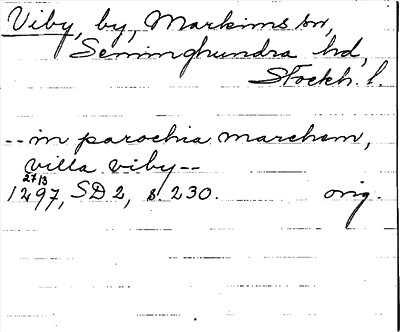 Viby, by, Markims sn,
Seminghundra hd,
Stockh. l.
--in parochia marchem,
villa viby--
27/3
1297, SD 2, s. 230. orig.